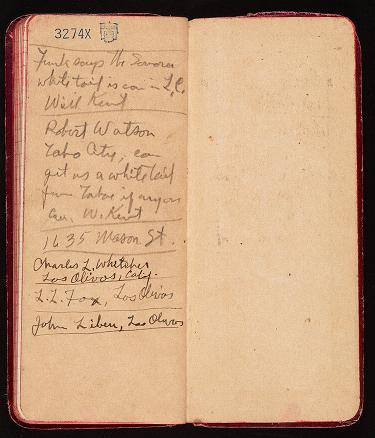 3274X
Funk says the Sonora
whitetail is com in L.C.
Will Kent
Robert Watson
Tahoe City, can
get us a whitetail
from Tahoe if anyone
can. W. Kent
1635 Mason St.
Charles L. Whitcher
Los Olivos, Caly.
L.L. Fox, Los Olivos
John Liben, Los Olivos